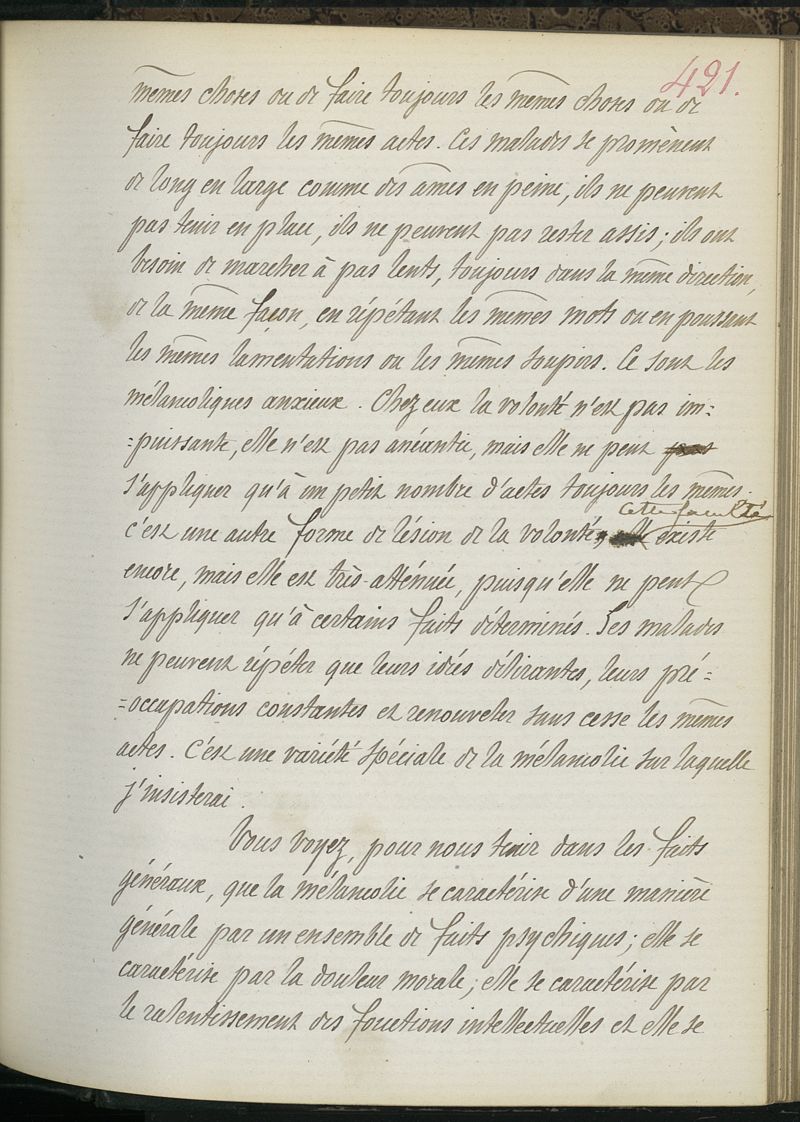 421.
mêmes choses ou de faire toujours les mêmes choses ou de
faire toujours les mêmes actes. Ces malades se promènent
de long en large comme des âmes en peine, ils ne peuvent
pas tenir en place, ils ne peuvent pas rester assis; ils ont
besoin de marcher à pas lents, toujours dans la même direction,
de la même façon, en répétant les mêmes mots ou en poussant
les mêmes lamentations ou les mêmes soupirs. Ce sont les
mélancoliques anxieux. Chez eux la volonté n'est pas im=
=puissante, elle n'est pas anéantie, mais elle ne peut pas
s'appliquer qu'à un petit nombre d'actes toujours les mêmes.
cette faculté
c'est une autre forme de lésion de la volonté, elle existe
encore, mais elle est très-atténuée, puisqu'elle ne peut
s'appliquer qu'à certains faits déterminés. Ses malades
ne peuvent répéter que leurs idées délirantes, leurs pré=
=occupations constantes et renouveler sans cesse les mêmes
actes. C'est une variété spéciale de la mélancolie sur laquelle
j'insisterai.
Vous voyez, pour nous tenir dans les faits
généraux, que la mélancolie se caractérise d'une manière
générale par un ensemble de faits psychiques; elle se
caractérise par la douleur morale; elle se caractérise par
le ralentissement des fonctions intellectuelles et elle se